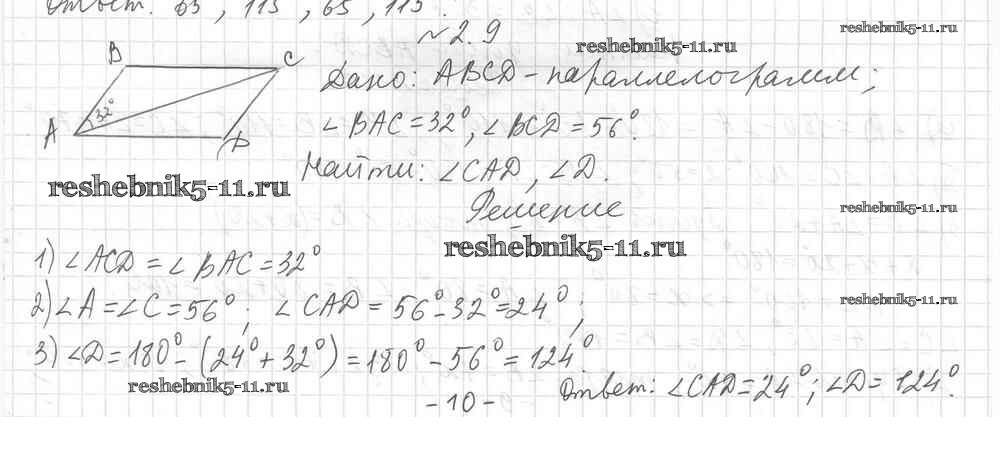 Ответ: 65°, 115°, 65°, 115°.
№2.9
reshebnik5-11.ru
reshebnik5-11.ru
B
C
Дано: ABCD - параллелограмм;
32°
A
D
∠BAC=32°, ∠BCD=56°.
Найти: ∠CAD, ∠D.
reshebnik5-11.ru
Решение
reshebnik5-11.ru
reshebnik5-11.ru
1) ∠ACD = ∠BAC = 32°
2) ∠A = ∠C = 56°; ∠CAD = 56° - 32° = 24°;
reshebnik5-11.ru
3) ∠D = 180° - (24° + 32°) = 180° - 56° = 124°.
reshebnik5-11.ru
Ответ: ∠CAD = 24°; ∠D = 124°.
- 10 -